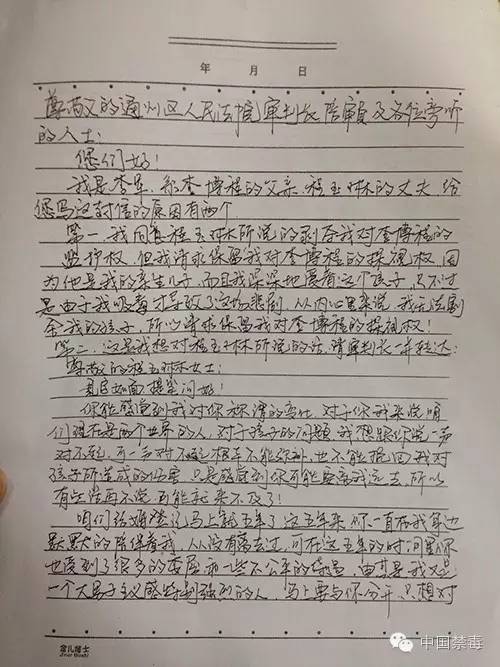 年 月 日
尊敬的通州区人民法院审判长陪审员及各位旁听
的人士:
您们好!
我是李星,系李博程的父亲,程玉林的丈夫 给
您写这封信的原因有两个
第一,我同意程玉林所说的剥夺我对李博程的
监护权,但我请求保留我对李博程的探视权,因
为他是我的亲生儿子,而且我深深地爱着这个孩子,只不过
是由于我吸毒才导致了这场悲剧,从内心里来说,我无法割
舍我的孩子,所以请求保留我对李博程的探视权!
第二,这是我想对程玉林所说的话,请审判长一并转达:
尊敬的程玉林女士:
见字如面 提笔问好!
你能感觉到我对你称谓的变化,对于你我来说咱
们现在是两个世界的人,对于孩子的问题,我想跟你说一声
对不起,可一声对不起根本不能弥补,也不能挽回我对
孩子所造成的伤害,只是感觉到你可能要离我远去,所以
有些话再不说,可能就来不及了!
咱们结婚登记马上就五年了,这五年来你一直在我身边
默默的陪伴着我,从没有离去过,可在这五年的时间里你
也受到了很多的委屈和一些不公平的待遇,尤其是我又是
一个大男子主义感特别强烈的人,马上要与你分开,只想对
金儿博士
中国禁毒